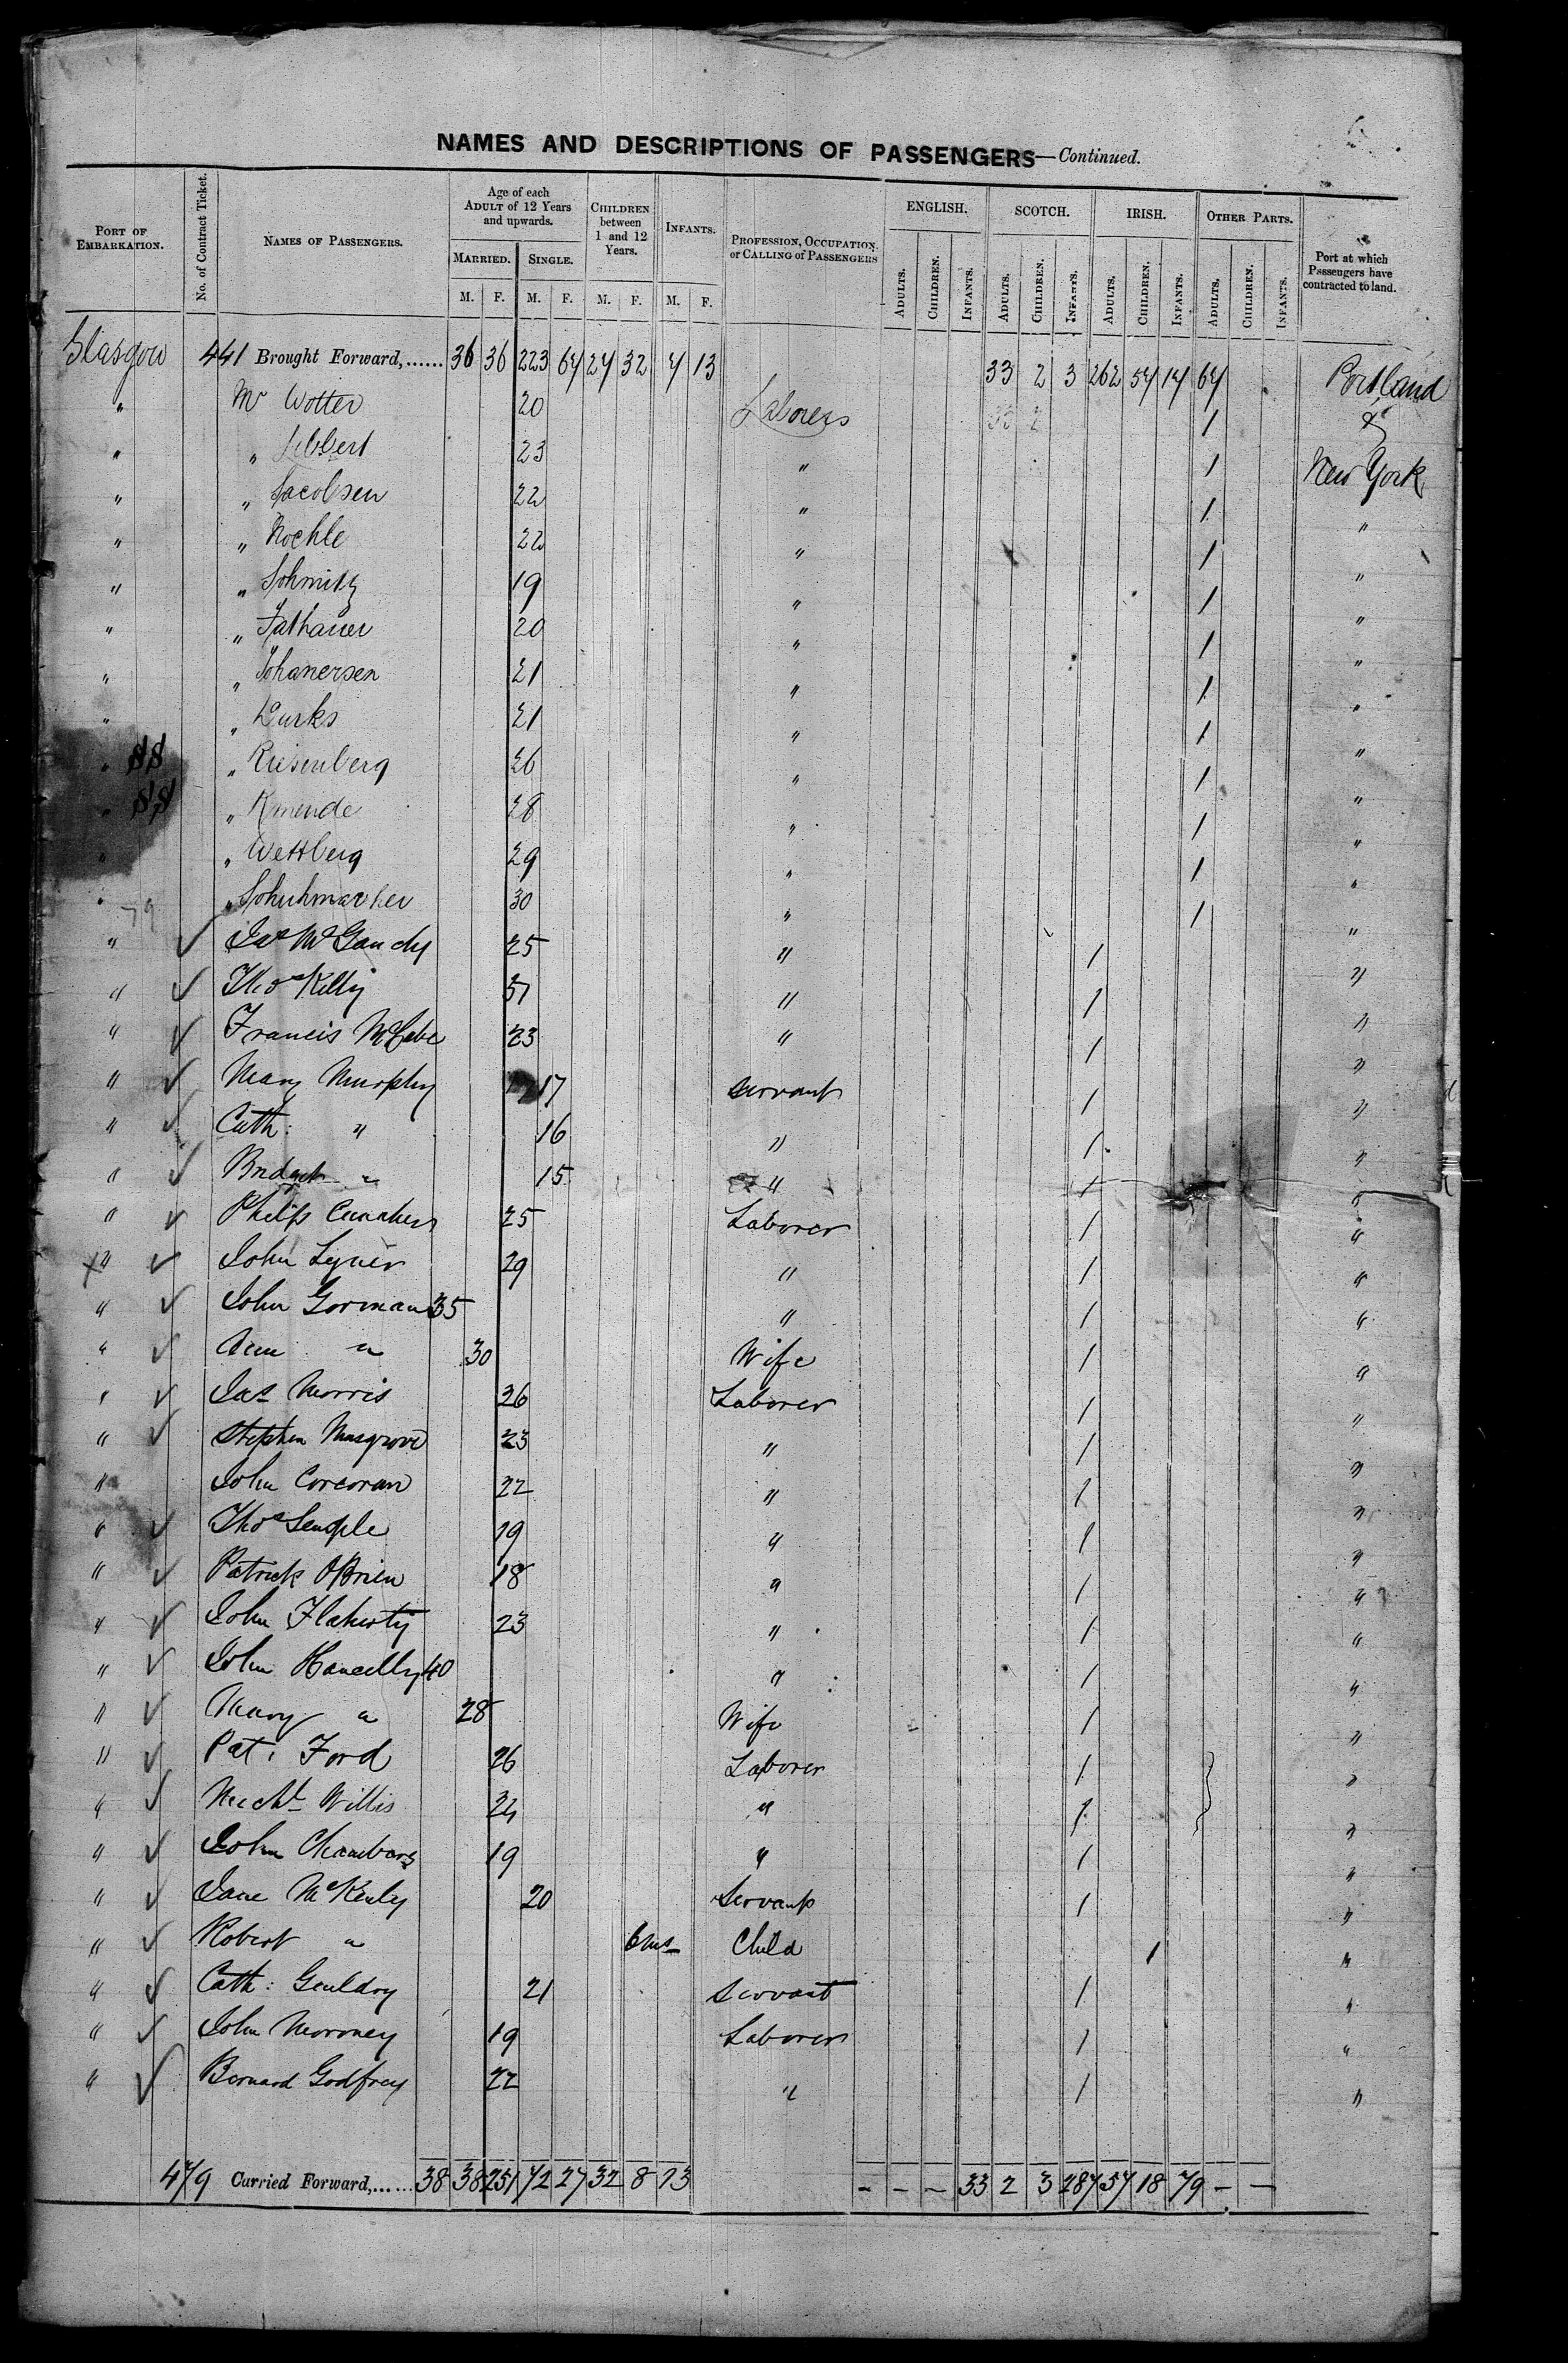 NAMES AND DESCRIPTIONS OF PASSENGERS—Continued.
PORT OF EMBARKATION. No. of Contract Ticket. NAMES OF PASSENGERS. Age of each ADULT of 12 Years and upwards. CHILDREN between 1 and 12 Years. INFANTS. PROFESSION, OCCUPATION, or CALLING of PASSENGERS ENGLISH. SCOTCH. IRISH. OTHER PARTS. Port at which Passengers have contracted to land.
MARRIED. SINGLE.
ADULTS. CHILDREN. INFANTS. ADULTS. CHILDREN. INFANTS. ADULTS. CHILDREN. INFANTS. ADULTS. CHILDREN. INFANTS.
M. F. M. F. M. F. M. F.
Glasgow 441 Brought Forward,...... 36 36 223 67 27 32 7 13 33 2 3 262 57 17 67 Portland
" Mr Wotter 20 Laborers 1 &
" " 23 " 1 New York
" " Jacobsen 22 " 1 "
" " Noehle 22 " 1 "
" " Schmitz 19 " 1 "
" " Fathauer 20 " 1 "
" " Johanersen 21 " 1 "
" " Lurks 21 " 1 "
" " Riesenberg 26 " 1 "
" " Kmende 28 " 1 "
" " Wettberg 29 " 1 "
" " Schuhmacher 30 " 1 "
" ✓ Jas McGandy 25 " 1 "
" ✓ Thos Kelly " 1 "
" ✓ Francis McCabe 23 " 1 "
" ✓ Mary Murphy 17 Servant 1 "
" ✓ Cath: " 16 " 1 "
" ✓ Bridget " 15 " 1 "
" ✓ Philip 25 Laborer 1 "
x " ✓ John Lyner 29 " 1 "
" ✓ John Gorman 35 " 1 "
" ✓ Ann " 30 Wife 1 "
" ✓ Jas Morris 26 Laborer 1 "
" ✓ Stephen Musgrove 23 " 1 "
" John Corcoran 22 " 1 "
" ✓ Thos Semple 19 " 1 "
" ✓ Patrick OBrien 18 " 1 "
" ✓ John Flaherty 23 " 1 "
" ✓ John 40 " 1 "
" ✓ Mary " 28 Wife 1 "
" ✓ Pat: Ford 26 Laborer 1 "
" ✓ Michl Willis " 1 "
" ✓ John Chambers 19 " 1 "
" ✓ Jane McKenly 20 Servant 1 "
" ✓ Robert " 6 ms Child 1 "
" ✓ Cath: Geuldry 21 Servant 1 "
" ✓ John Moroney 19 Laborer 1 "
" ✓ Bernard Godfrey 22 " 1 "
479 Carried Forward,...... 38 38 251 72 27 32 8 13 - - - 33 2 3 287 57 18 79 - -